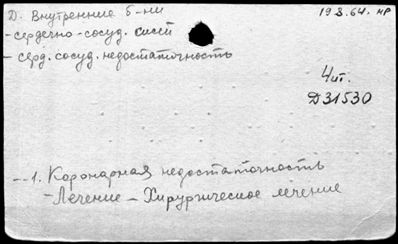 Д. Внутренние б-ни
-сердечно-сосуд. сист
- серд. сосуд. недостаточность
19 8.64. нр
Чит.
Д31530
--1. Коронарная недостаточность
-Лечение - Хирургическое лечение